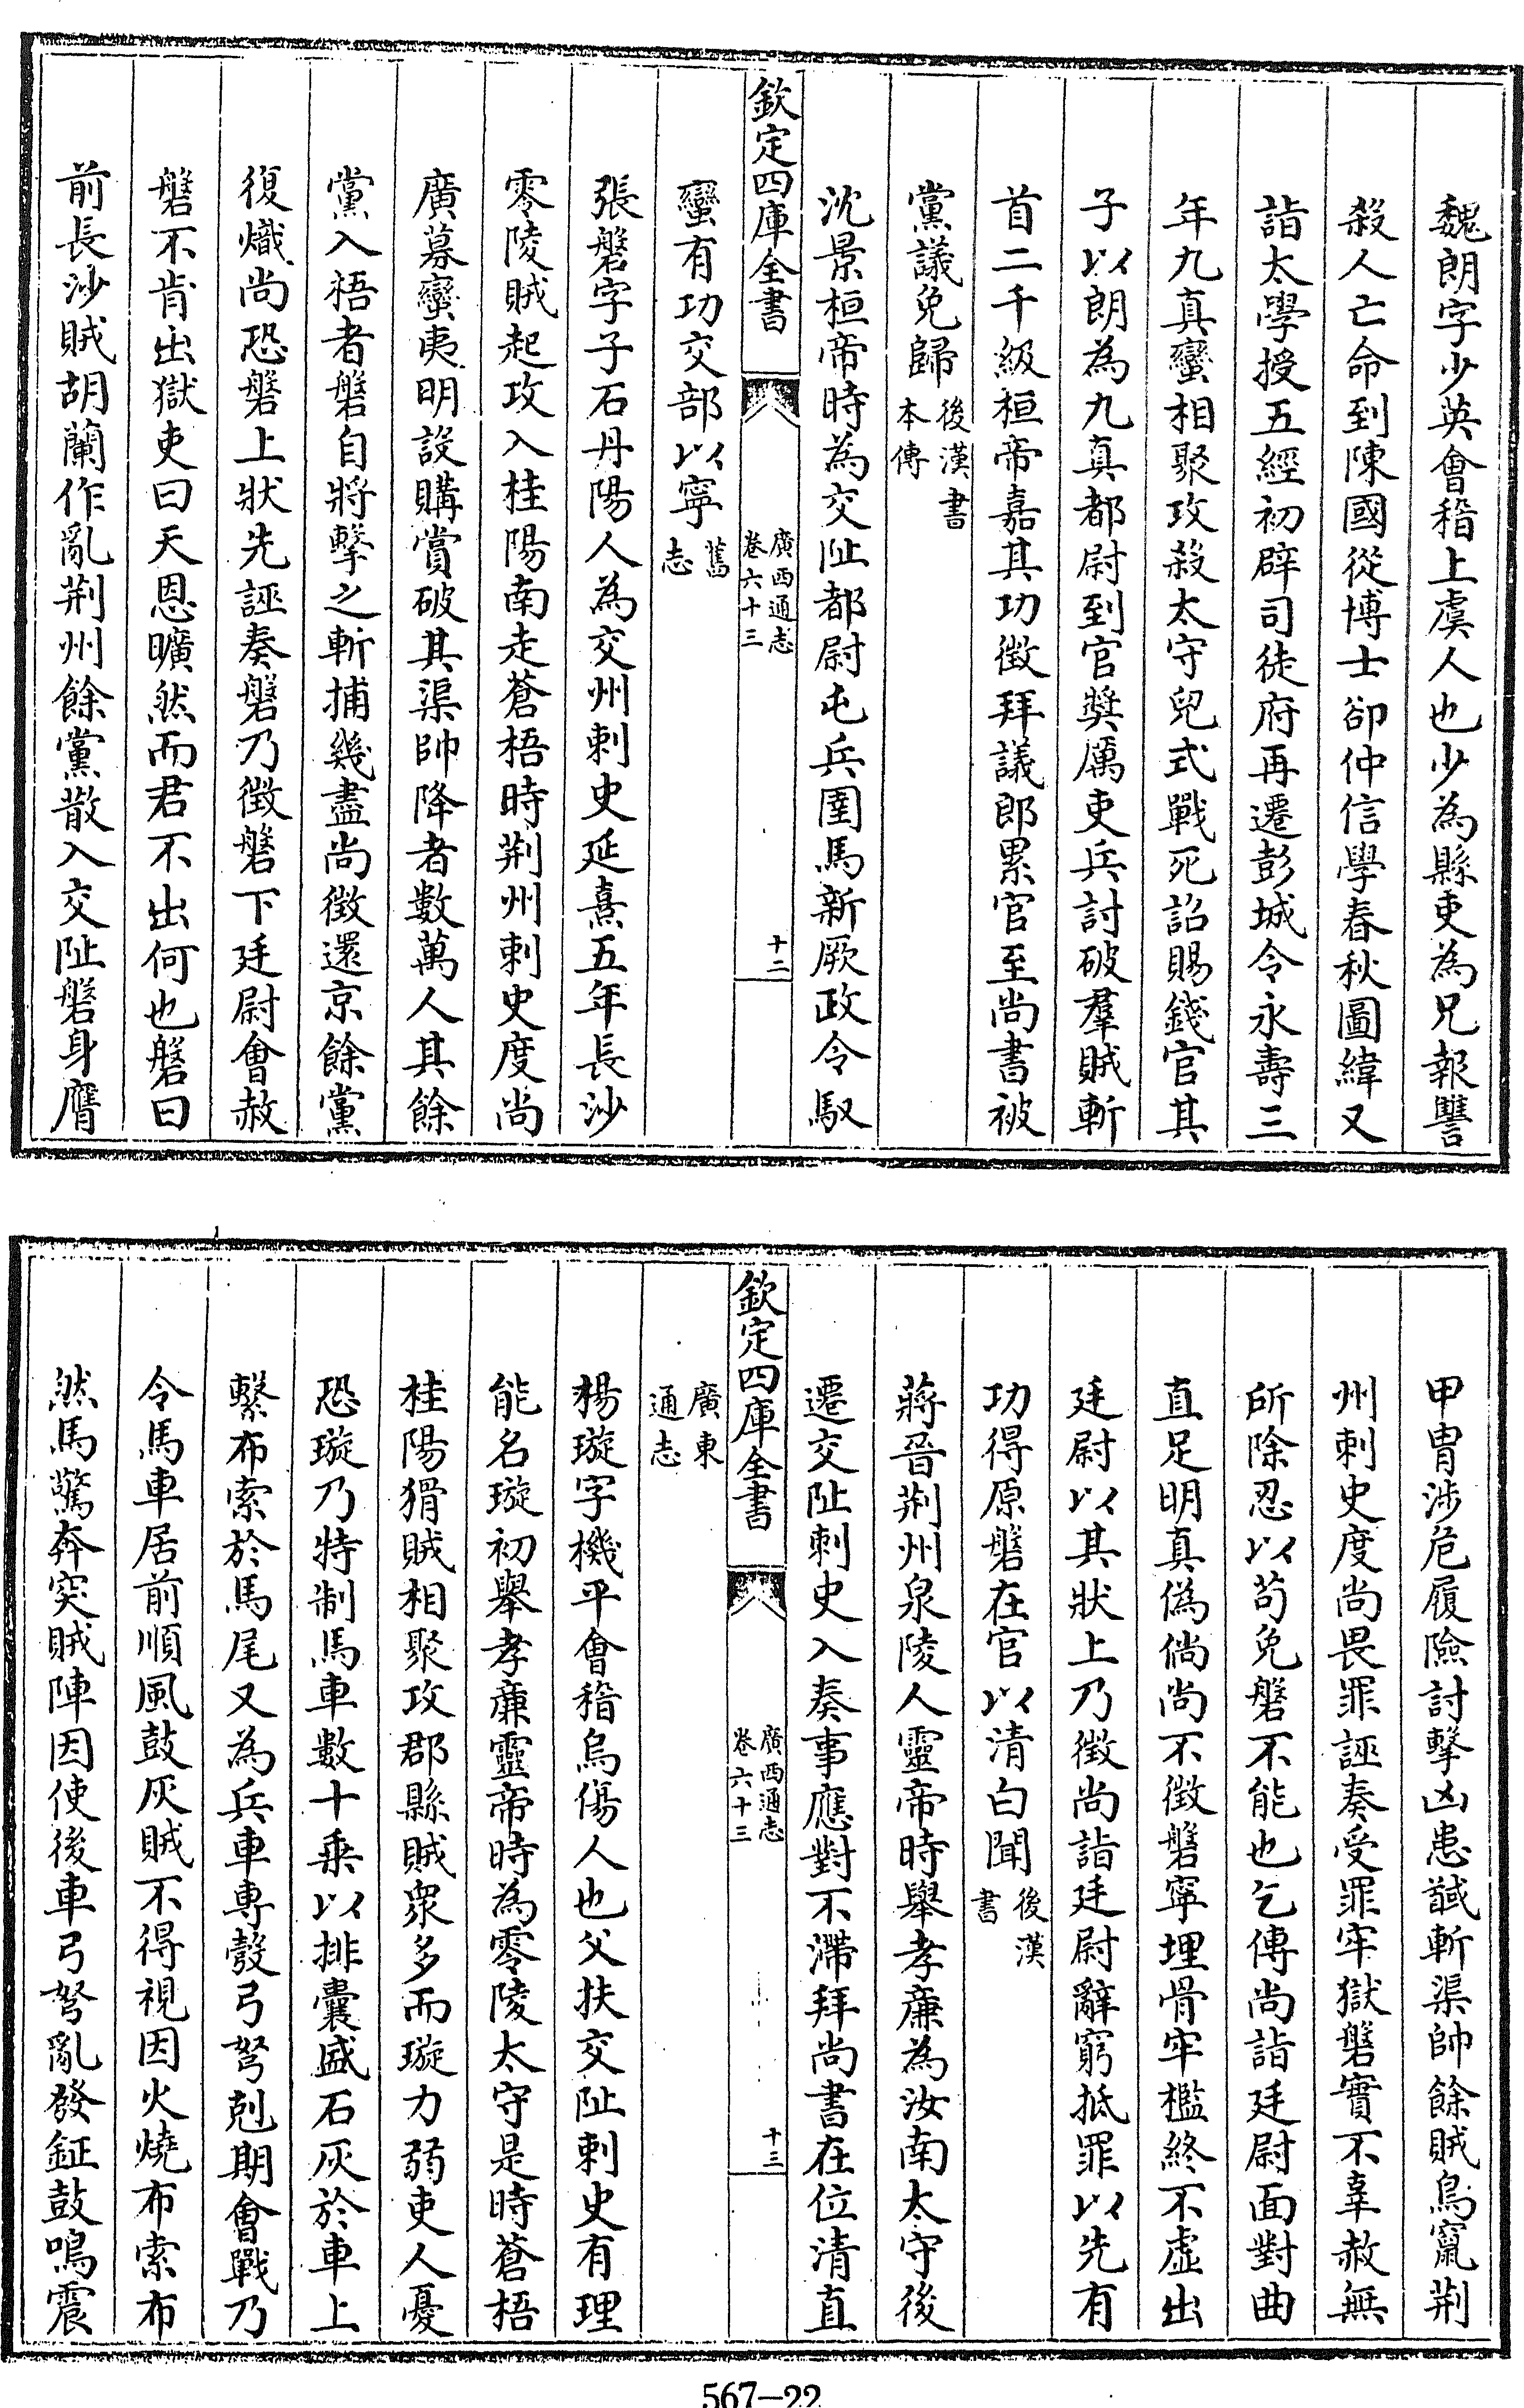 魏朗字少英會稽上虞人也少為縣吏為兄報讐
殺人亡命到陳國從博士郤仲信學春秋圖緯又
詣太學授五經初辟司徒府再遷彭城令永壽三
年九真蠻相聚攻殺太守兒式戰死詔賜錢官其
子以朗為九真都尉到官獎厲吏兵討破羣賊斬
首二千級桓帝嘉其功徴拜議郎累官至尚書被
黨議免歸後漢書本傳
沈景桓帝時為交阯都尉屯兵圉馬新厥政令馭
欽定四庫全書 廣西通志卷六十三 十二
蠻有功交部以寧舊志
張磐字子石丹陽人為交州刺史延熹五年長沙
零陵賊起攻入桂陽南走蒼梧時荆州刺史度尚
廣募蠻夷明設購賞破其渠帥降者數萬人其餘
黨入梧者磐自將擊之斬捕幾盡尚徴還京餘黨
復熾尚恐磐上狀先誣奏磐乃徴磐下廷尉會赦
磐不肯出獄吏曰天恩曠然而君不出何也磐曰
前長沙賊胡蘭作亂荆州餘黨散入交阯磐身膺
甲冑涉危履險討擊凶患馘斬渠帥餘賊鳥竄荆
州刺史度尚畏罪誣奏受罪牢獄磐實不辜赦無
所除忍以苟免磐不能也乞傳尚詣廷尉面對曲
直足明真偽倘尚不徴磐寜埋骨牢檻終不虛出
廷尉以其狀上乃徴尚詣廷尉辭窮抵罪以先有
功得原磐在官以清白聞後漢書
蔣晉荆州泉陵人靈帝時舉孝廉為汝南太守後
遷交阯刺史入奏事應對不滯拜尚書在位清直
欽定四庫全書 廣西通志卷六十三 十三
廣東通志
楊璇字機平會稽烏傷人也父扶交阯刺史有理
能名璇初舉孝廉靈帝時為零陵太守是時蒼梧
桂陽猾賊相聚攻郡縣賊衆多而璇力弱吏人憂
恐璇乃特制馬車數十乗以排囊盛石灰於車上
繫布索於馬尾又為兵車專彀弓弩剋期會戰乃
令馬車居前順風鼓灰賊不得視因火燒布索布
然馬驚奔突賊陣因使後車弓弩亂發鉦鼓鳴震
567-22